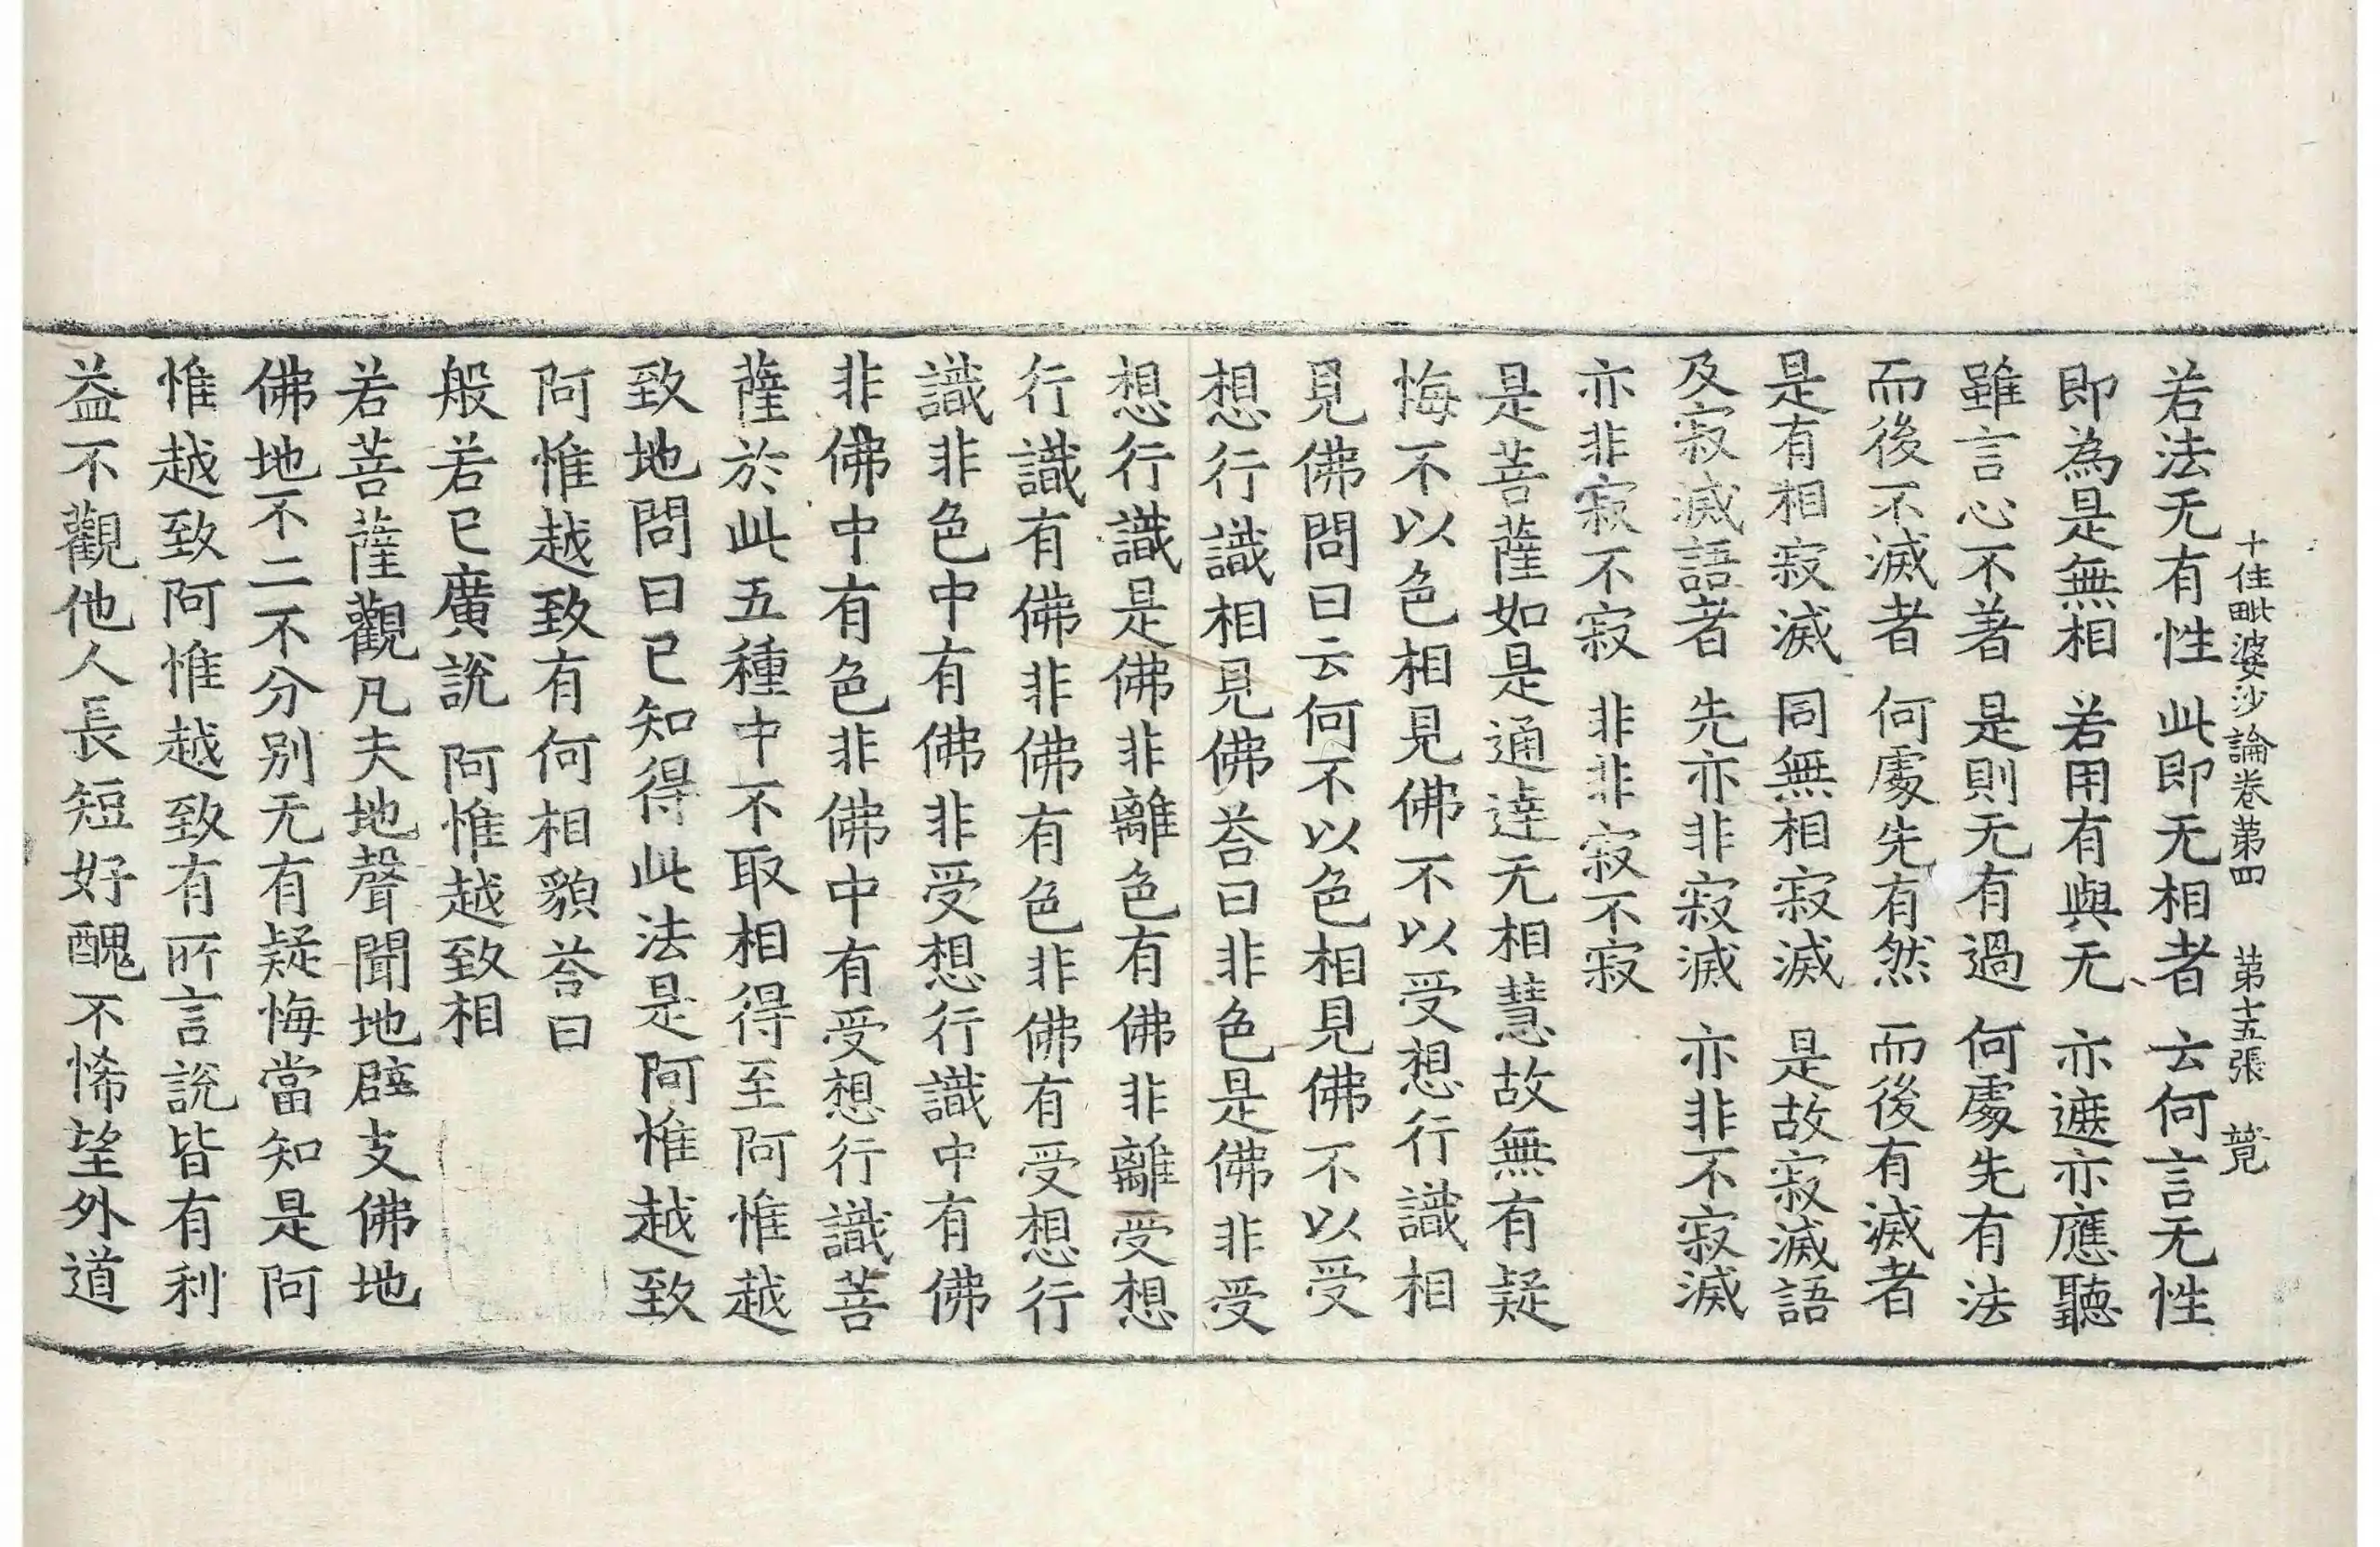 十住毗婆沙論卷苐四　苐十五張　萛
若法无有性　此即无相者　云何言无性
即為是無相　若用有與无　亦遮亦應聽
雖言心不著　是則无有過　何處先有法
而後不滅者　何處先有然　而後有滅者
是有相寂滅　同無相寂滅　是故寂滅語
及寂滅語者　先亦非寂滅　亦非不寂滅
亦非寂不寂　非非寂不寂
是菩薩如是通達无相慧故無有疑
悔不以色相見佛不以受想行識相
見佛問曰云何不以色相見佛不以受
想行識相見佛荅曰非色是佛非受
想行識是佛非離色有佛非離受想
行識有佛非佛有色非佛有受想行
識非色中有佛非受想行識中有佛
非佛中有色非佛中有受想行識菩
薩於此五種中不取相得至阿惟越
致地問曰已知得此法是阿惟越致
阿惟越致有何相貌荅曰
般若已廣說　阿惟越致相
若菩薩觀凡夫地聲聞地辟支佛地
佛地不二不分別无有疑悔當知是阿
惟越致阿惟越致有所言說皆有利
益不觀他人長短好醜不悕望外道